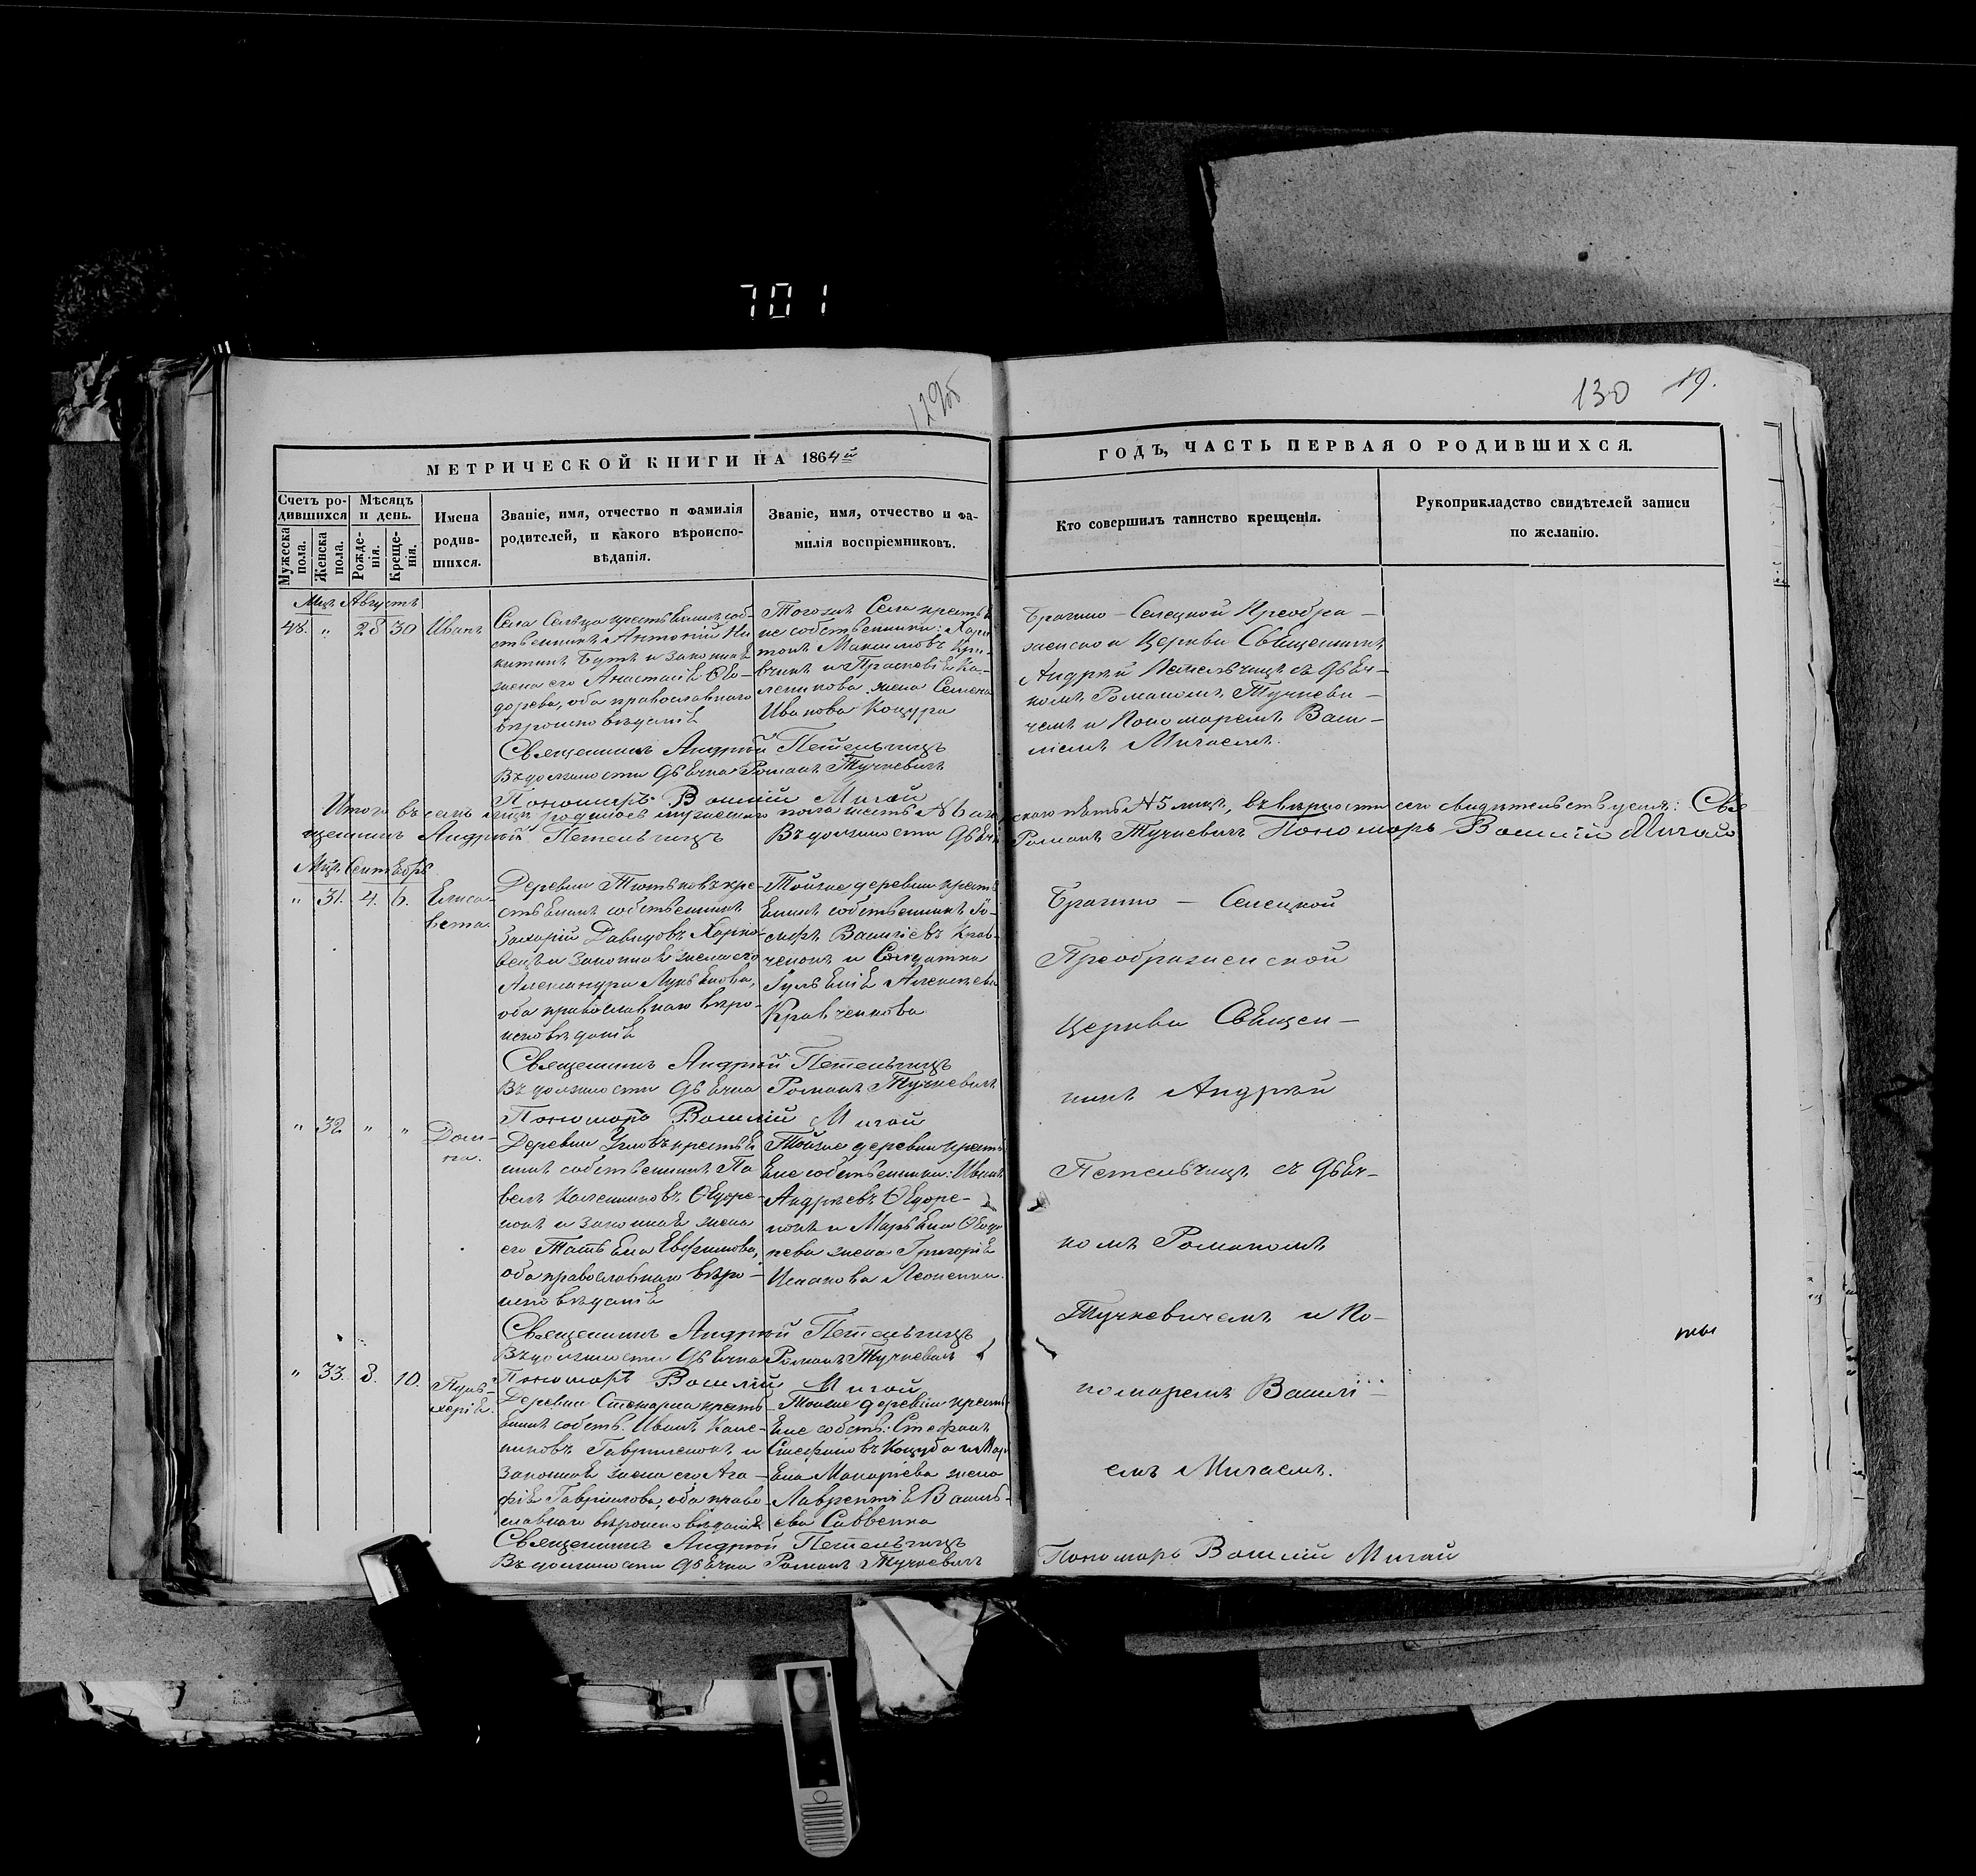 701
129об
130 19.
МЕТРИЧЕСКОЙ КНИГИ НА 1864й
ГОДЪ, ЧАСТЬ ПЕРВАЯ О РОДИВШИХСЯ.
Счетъ ро-
дившихся
Мужеска пола.
Женска пола.
Мѣсяцъ
и день.
Рожде-
нія.
Креще-
нія.
Имена
родив-
шихся.
Званіе, имя, отчество и фамилія
родителей, и какого вѣроиспо-
вѣданія.
Званіе, имя, отчество и фа-
милія воспріемниковъ.
Кто совершилъ таинство крещенія.
Рукоприкладство свидѣтелей записи
по желанію.
Мцъ Августъ
48. " 28 30 Иванъ
Села Сельца крестьянинъ соб-
ственникъ Антоній Ни
китинъ Бутъ и законная
жена его Анастасія Ѳео-
дорова, оба православнаго
вѣроисповѣданія
Тогожъ Села крестья
не собственники: Хари
тонъ Максимовъ
и Праскевія Ка-
леникова жена Семена
Иванова Коцура
Брагино - Селецкой Преобра-
женской Церкви Священникъ
Андрей Петельчицъ съ дьяч-
комъ Романомъ Тучкеви-
чемъ и Пономаремъ Васи-
ліемъ Мигаемъ.
Священникъ Андрей Петельчицъ
Въ должности дьячка Романъ Тучкевичъ
Пономарь Василій Мигай
Итого въ семъ мцѣ родилось мужескаго пола шесть №6 а жен
скаго пять №5 лицъ, въ вѣрности сего свидѣтельствуемъ: Свя
щенникъ Андрей Петельчицъ Въ должности дьячка
Романъ Тучкевичъ Пономарь Василій Мигай
Мцъ Сентябрь
" 31. 4. 6. Елиса-
вета.
Деревни Тютьковъ кре-
стьянинъ собственникъ
Захарій Давидовъ Харко-
вецъ и законная жена его
Александра Лукьянова,
оба православнаго вѣро-
исповѣданія
Тойже деревни кресть
янинъ собственникъ Іо-
сифъ Васильевъ Крав-
ченокъ и Солдатка
Іуліанія Алексѣева
Кравченкова
Брагино - Селецкой
Преображенской
Церкви Священ-
никъ Андрей
Петельчицъ съ дьяч-
комъ Романомъ
Тучкевичемъ и По-
номаремъ Василі-
емъ Мигаемъ.
Священникъ Андрей Петельчицъ
Въ должности дьячка Романъ Тучкевичъ
Пономарь Василій Мигай
" 32 " " Дом-
на.
Деревни Угловъ крестья
нинъ собственникъ Па
велъ Калениковъ Ѳедоре-
нокъ и законная жена
его Татьяна Евфимова,
оба православнаго вѣро-
исповѣданія
Тойже деревни кресть
яне собственники: Иванъ
Андреевъ Ѳедоре-
нокъ и Марьяна
жена Григорія
Исакова Леоненки.
Священникъ Андрей Петельчицъ
Въ должности дьячка Романъ Тучкевичъ
Пономарь Василій Мигай
" 33. 8. 10. Пуль-
херія.
Деревни кресть
янинъ собств. Иванъ Кале-
никовъ Гавриленокъ и
законная жена его Ага-
фія Гавріилова, оба право
славнаго вѣроисповѣданія
Тойже деревни кресть
яне собств. Стефанъ
Стефановъ Коцуба и Мар
Макаріева жена
Лаврентія Василь-
ева Саввенка
Священникъ Андрей Петельчицъ
Въ должности дьячка Романъ Тучкевичъ
Пономарь Василій Мигай